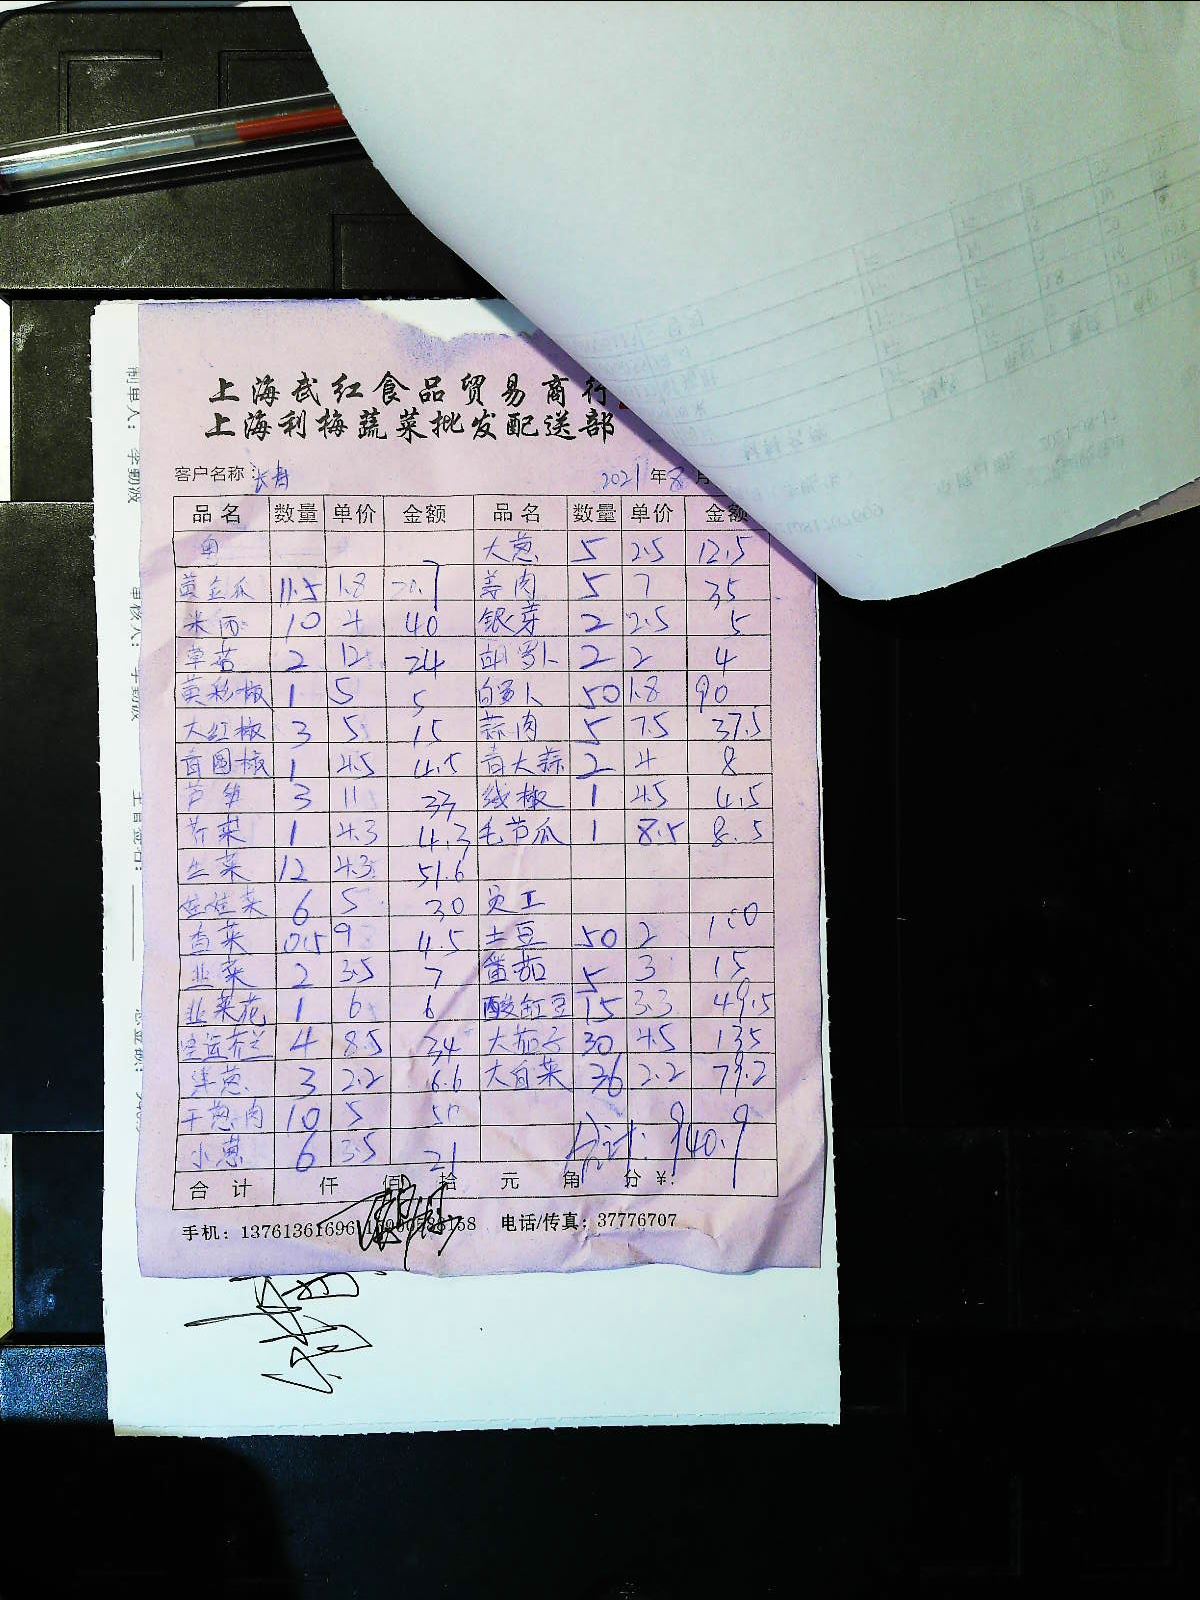 上海武红食品贸易商行
上海利梅蔬菜批发配送部
客户名称：长舟 2021年8月
品名 数量 单价 金额 品名 数量 单价 金额
粤 大葱 5 2.5 12.5
黄金瓜 11.5 1.8 20.7 姜肉 5 7 35
米苋 10 4 40 银芽 2 2.5 5
草菇 2 12 24 胡萝卜 2 2 4
黄彩椒 1 5 5 白萝卜 50 1.8 90
大红椒 3 5 15 蒜肉 5 7.5 37.5
青圆椒 1 4.5 4.5 青大蒜 2 4 8
芦笋 3 11 33 线椒 1 4.5 4.5
芥菜 1 4.3 4.3 毛节瓜 1 8.5 8.5
生菜 12 4.3 51.6
娃娃菜 6 5 30 员工
香菜 0.5 9 4.5 土豆 50 2 100
韭菜 2 3.5 7 番茄 5 3 15
韭菜花 1 6 6 酸缸豆 15 3.3 49.5
空运芥兰 4 8.5 34 大茄子 30 4.5 135
洋葱 3 2.2 6.6 大白菜 36 2.2 79.2
干葱肉 10 5 50
小葱 6 3.5 21 合计：940.9
合计 仟 佰 拾 元 角 分 ¥:
手机：13761361696 电话/传真：37776707
制单人：李勤波
审核人：李勤波
主管签名：